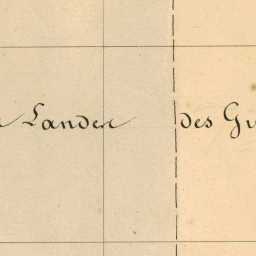 Landen des Gu